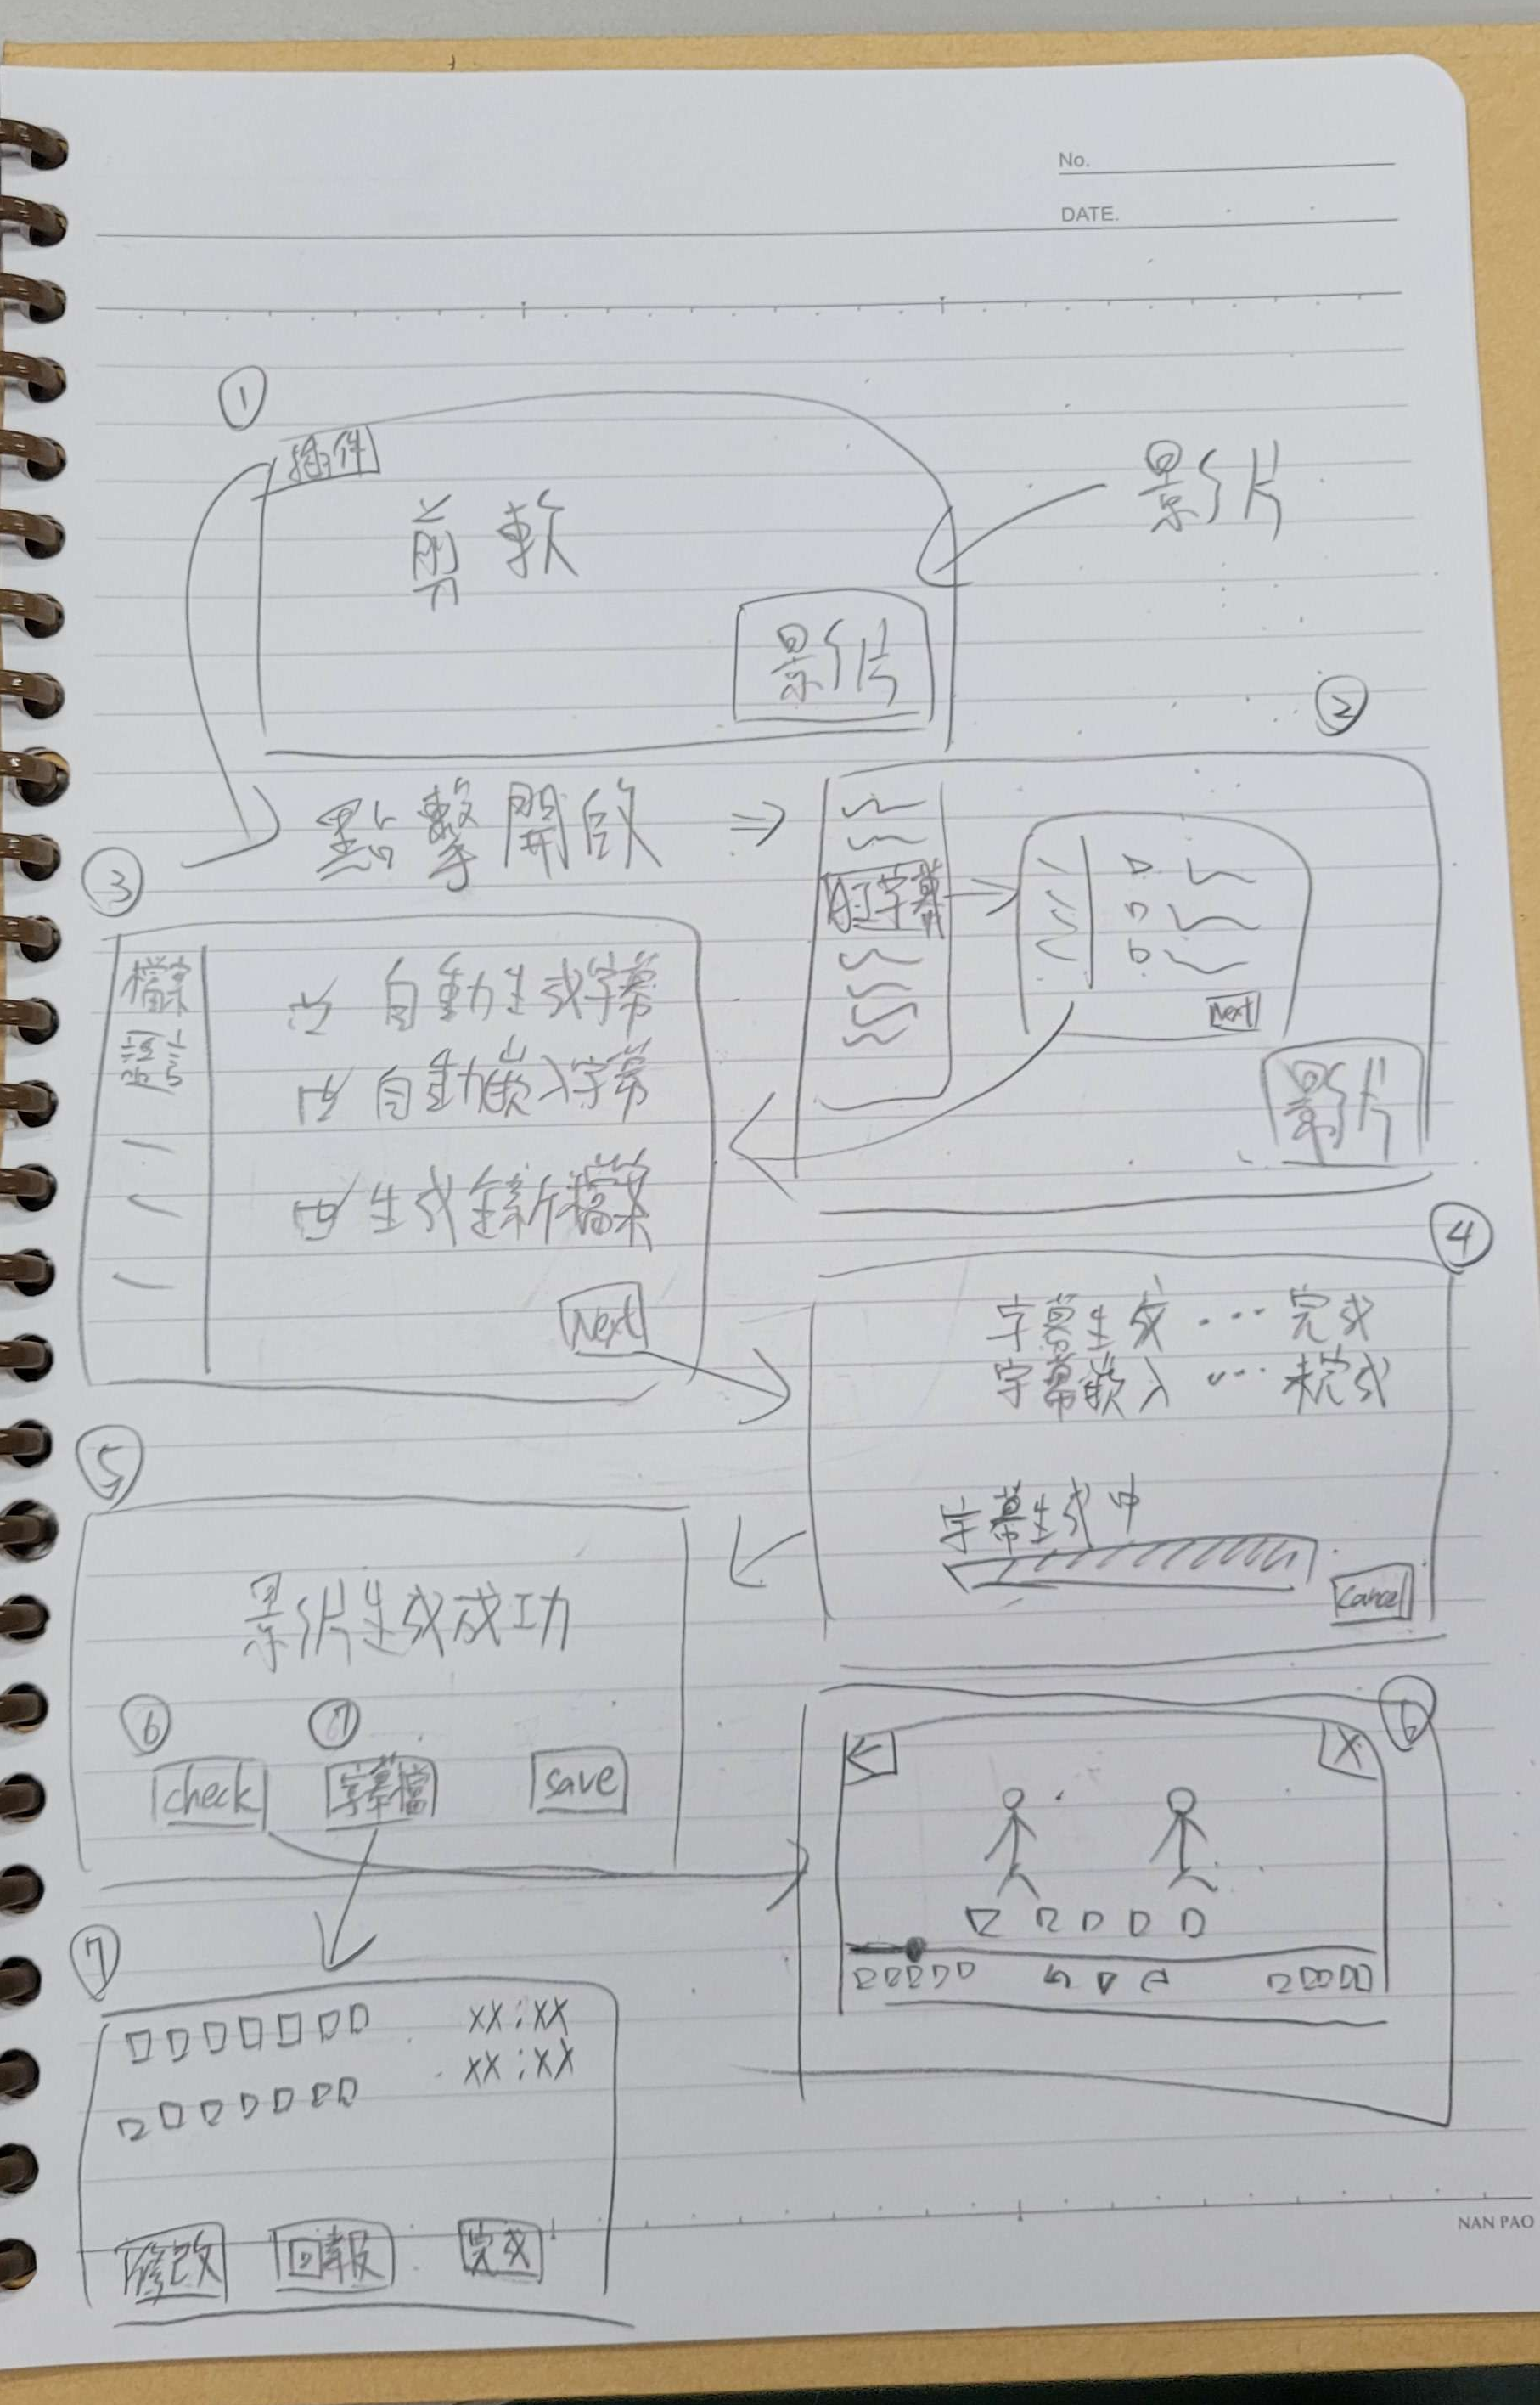 No.
DATE.
①
插件
剪軟
影片
影片
②
點擊開啟
字幕
Next
影片
③
檔案
語言
自動生成字幕
自動嵌入字幕
生成全新檔案
Next
④
字幕生成 … 完成
字幕嵌入 … 未完成
字幕生成中
Cancel
⑤
影片生成成功
⑥ ⑦
check 字幕檔 save
⑥
X
⑦
XX:XX
XX:XX
修改 回報 完成
NAN PAO